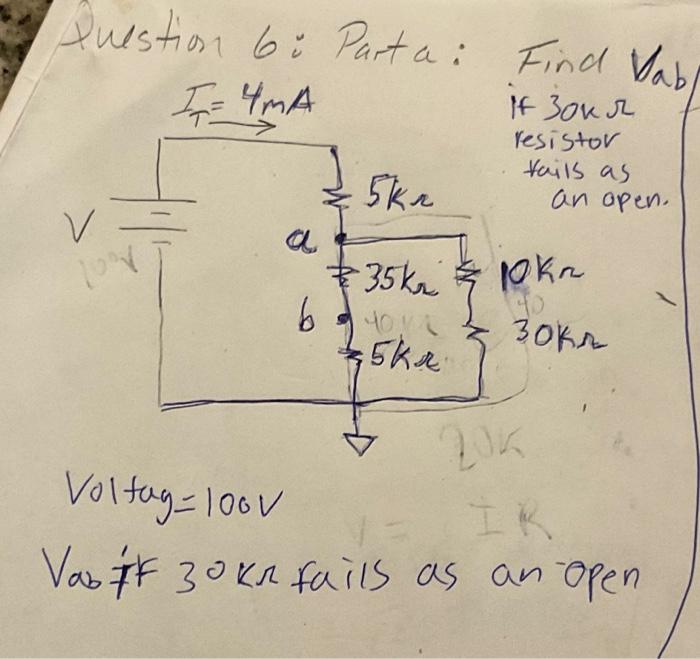 Question 6: Part a: Find Vab
if 30kΩ
resistor
fails as
an open.
I_T = 4mA
5kΩ
V
100V
a
35kΩ
10KΩ
40
b
40K
30KΩ
5kΩ
20K
Voltag=100V
V = IR
Vab if 30KΩ fails as an open